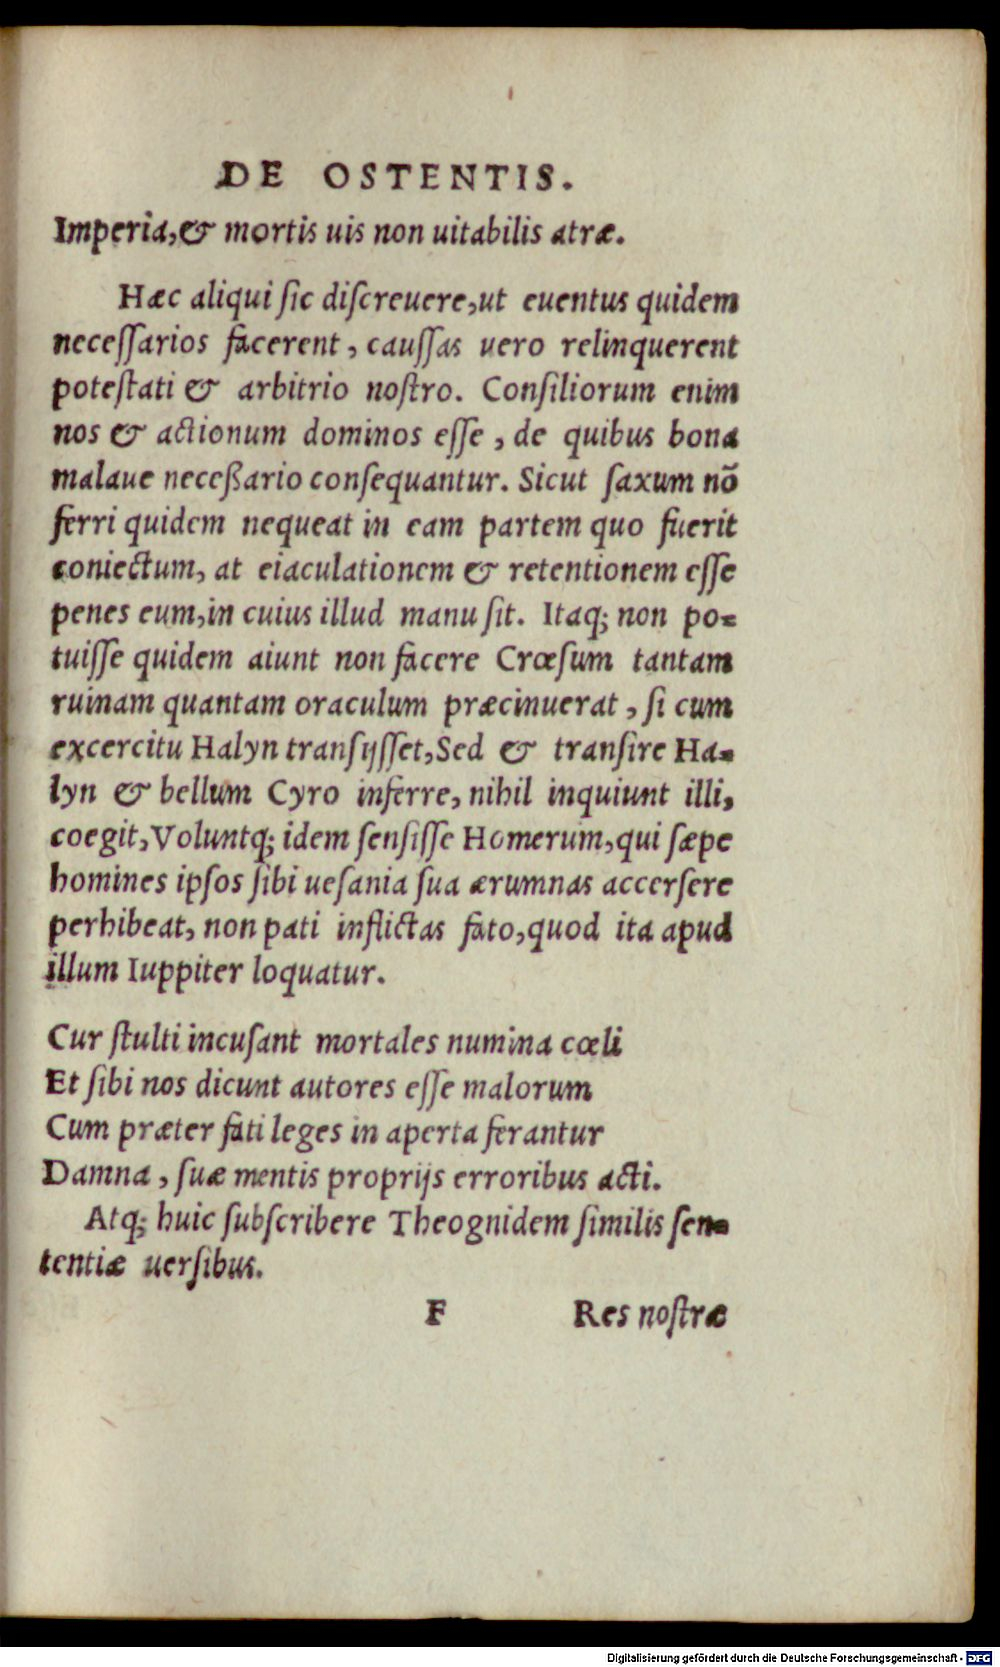 DE OSTENTIS.
Imperia, & mortis uis non uitabilis atræ.
Hæc aliqui ſic diſcreuere, ut euentus quidem
neceſſarios facerent, cauſſas uero relinquerent
poteſtati & arbitrio noſtro. Conſiliorum enim
nos & actionum dominos eſſe, de quibus bona
malaue neceßario conſequantur. Sicut ſaxum nō
ferri quidem nequeat in eam partem quo fuerit
coniectum, at eiaculationem & retentionem eſſe
penes eum, in cuius illud manu ſit. Itaq; non po-
tuiſſe quidem aiunt non facere Crœſum tantam
ruinam quantam oraculum præcinuerat, ſi cum
excercitu Halyn tranſijſſet, Sed & tranſire Ha-
lyn & bellum Cyro inferre, nihil inquiunt illi,
coegit, Voluntq; idem ſenſiſſe Homerum, qui ſæpe
homines ipſos ſibi ueſania ſua ærumnas accerſere
perhibeat, non pati inflictas fato, quod ita apud
illum Iuppiter loquatur.
Cur ſtulti incuſant mortales numina cœli
Et ſibi nos dicunt autores eſſe malorum
Cum præter fati leges in aperta ferantur
Damna, ſuæ mentis proprijs erroribus acti.
Atq; huic ſubſcribere Theognidem ſimilis ſen-
tentiæ uerſibus.
F Res noſtræ
Digitalisierung gefördert durch die Deutsche Forschungsgemeinschaft - DFG